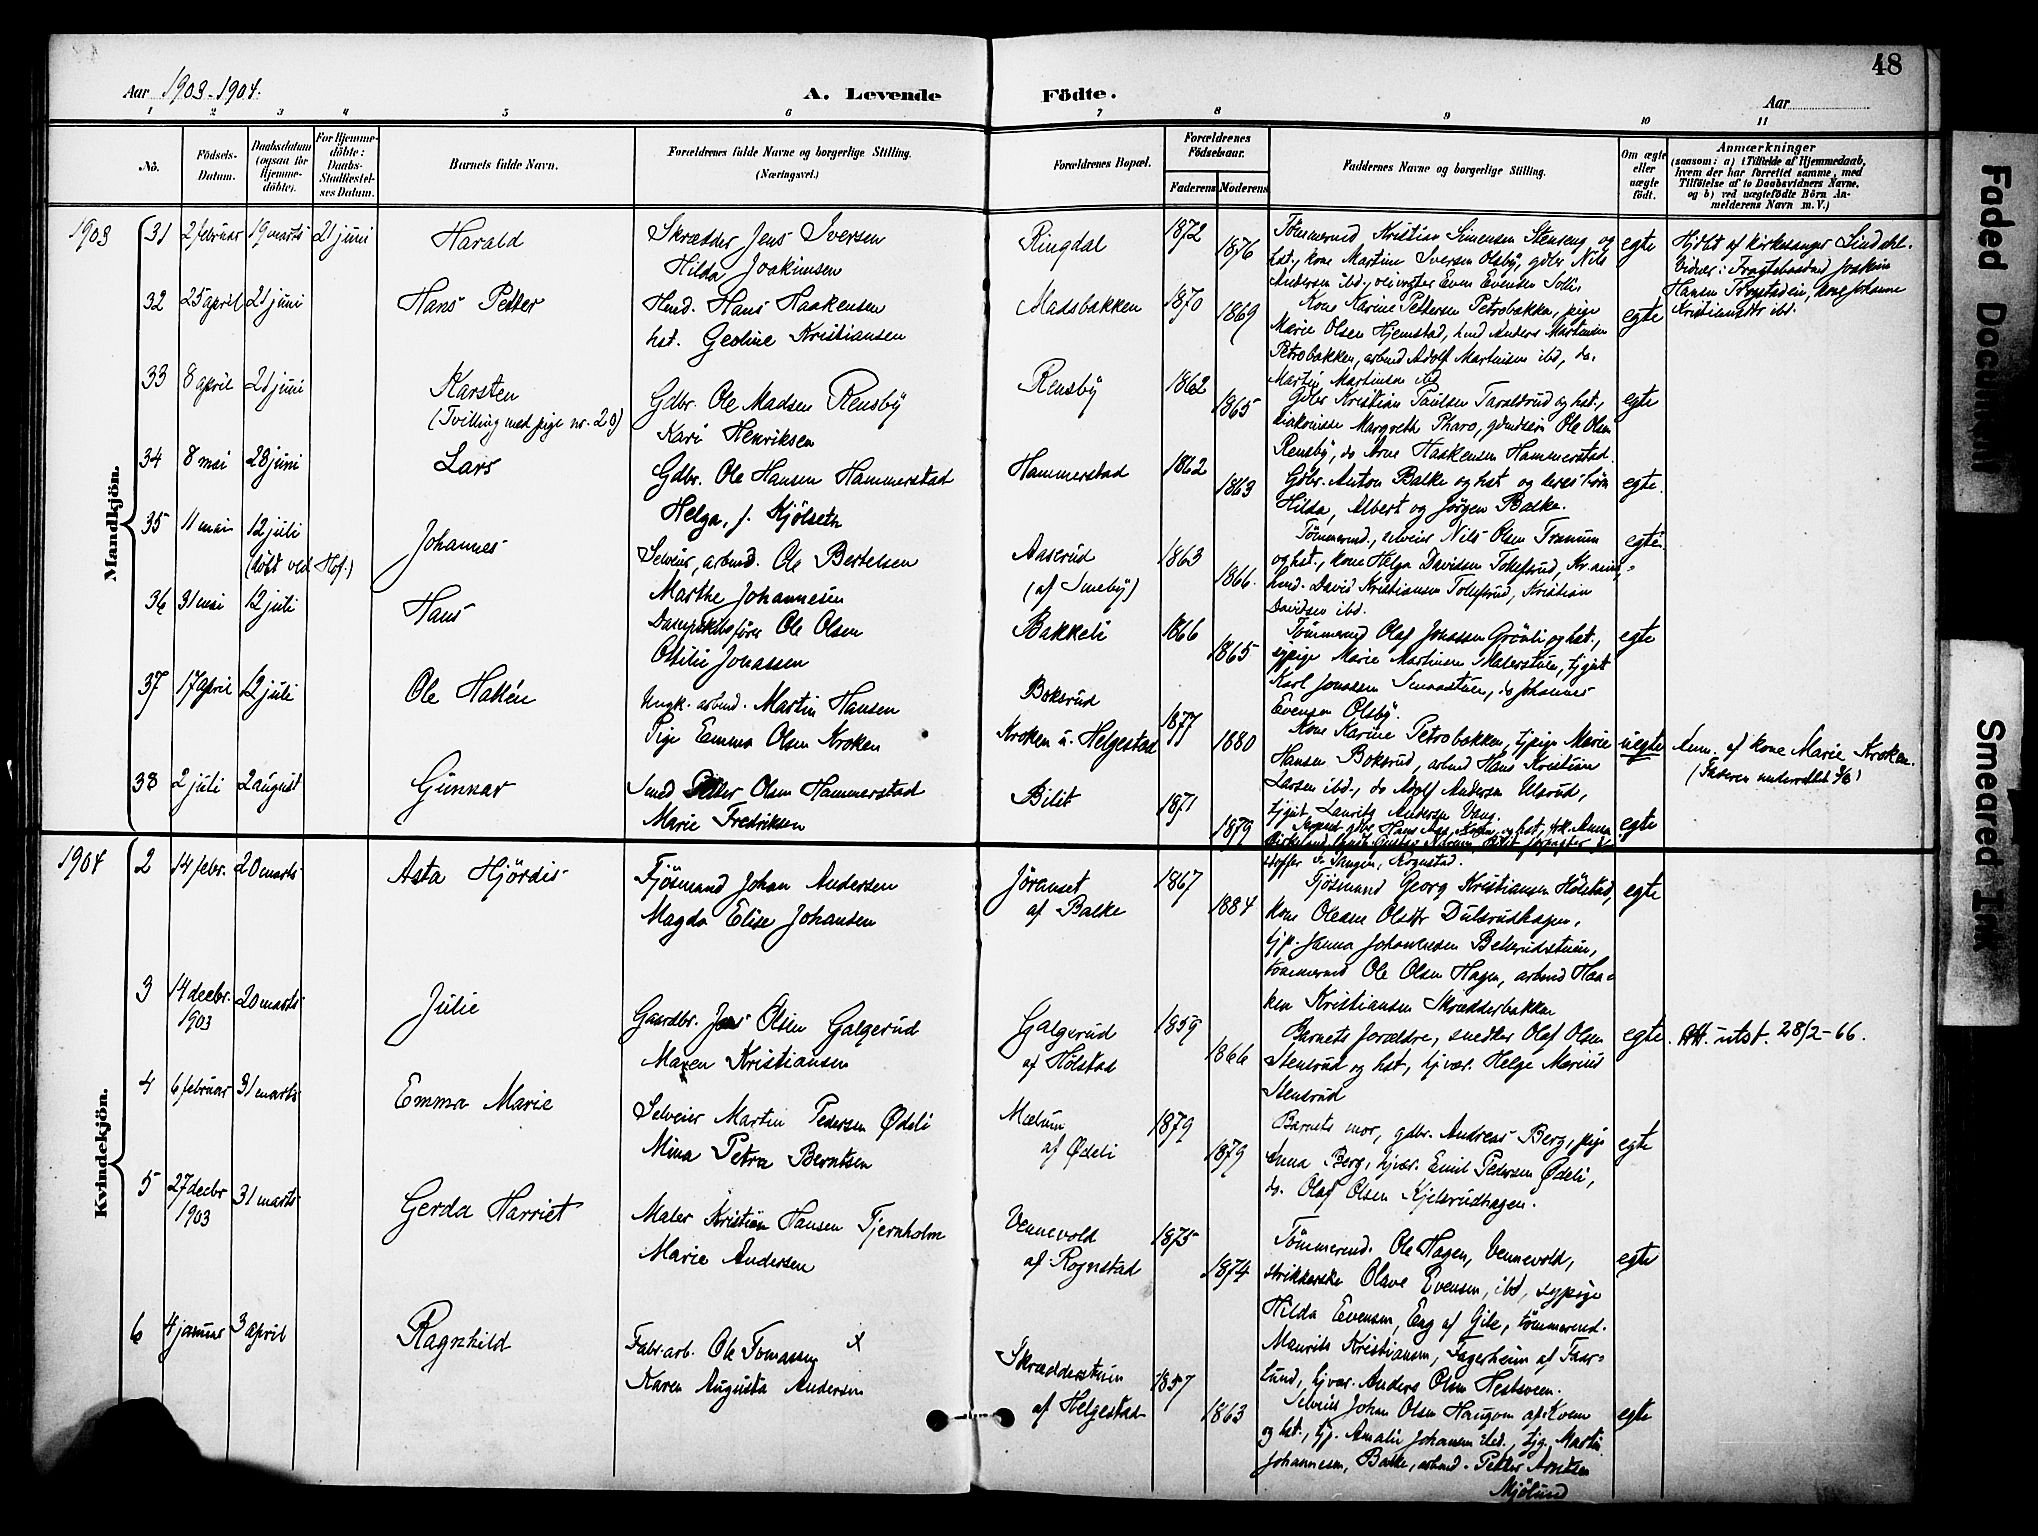 48
Aar 1903-1904.
A. Levende Födte.
Aar
1 2 3 4 5 6 7 8 9 10 11
No.
Födsels-Datum.
Daabsdatum (ogsaa for Hjemme-döbte).
For Hjemme-döbte: Daabs-Stadfæstel-ses Datum.
Barnets fulde Navn.
Forældrenes fulde Navne og borgerlige Stilling. (Næringsvei.)
Forældrenes Bopæl.
Forældrenes Födselsaar.
Faderens Moderens
Faddernes Navne og borgerlige Stilling.
Om ægte eller uægte födt.
Anmærkninger
(saasom: a) i Tilfælde af Hjemmedaab, hvem der har forrettet samme, med Tilföielse af to Daabsvidners Navne, og b) ved uægtefödte Börn An-melderens Navn m. V.)
Mandkjön.
1903
31 2 februar 19 marts 21 juni Harald
Skrædder Jens Iversen
Hilda Joakimsen
Ringdal 1872 1876
Tömmermd Kristian Simensen Stenseng og
hst., kone Martine Iversen Olsby, gdbr Nils
Andersen ibd., veivogter Even Evensen Solli
egte
Hjdbt af kirkesanger Lindahl.
Vidner: Joakim
Hansen kone Johanne
Kristiansdtr ibd.
32 25 april 21 juni Hans Petter
Hmd. Hans Haakensen
hst. Geoline Kristiansen
Madsbakken 1870 1869
Kone Karine Pettersen Petrobakken, pige
Marie Olsen Hjemstad, hmd Anders Martinsen
Petrobakken, arbmd Adolf Martinsen ibd, do.
Martin Martinsen ibd
egte
33 8 april 21 juni Karsten
(Tvilling med pige nr. 20)
Gdbr. Ole Madsen Rensby
Kari Henriksen
Rensby 1862 1865
Gdbr Kristian Paulsen Taralsrud og hst.,
diakonisse Margreth Tharo, gmdsön Ole Olsen
Rensby, do Arne Haakensen Hammerstad.
egte
34 8 mai 28 juni Lars
Gdbr. Ole Hansen Hammerstad
Helga, f. Kjölseth
Hammerstad 1862 1863
Gdbr. Anton Balke og hst og deres börn
Hilda, Albert og Jörgen Balke.
egte.
35 11 mai 12 juli Johannes
(döbt ved Hof.)
Selveier, arbmd. Ole Bertelsen
Marthe Johannesen
Aaserud
(af Smeby)
1863 1866.
Tömmermd., selveier Nils Olsen Framum
og hst., kone Helga Davidsen Tollefsrud,
hmd. David Kristiansen Tollefsrud, Kristian
Davidsen ibd.
egte
36 31 mai 12 juli Hans
Dampskibsförer Ole Olsen
Otilie Jonassen
Bakkeli 1866 1865
Tömmermd Olaf Jonassen Grönli og hst.,
sypige Marie Martinsen Malerstuen, tjgut
Karl Jonassen do Johannes
Evensen Olsby.
egte
37 17 april 12 juli Ole Hakén
Ungk. arbmd. Martin Hansen
Pige Emma Olsen Kroken
Boksrud
Kroken u. Helgestad
1877 1880
Kone Karine Petrobakken, tjpige Marie
Hansen Boksrud, arbmd Hans Kristian
Larsen ibd., do Adolf Andersen Ulsrud,
tjgut Laurits Andersen Vang.
uegte
Anm. af kone Marie Kroken.
(Faderen underrettet)
38 2 juli 2 august Gunnar
Smed Petter Olsen Hammerstad
Marie Fredriksen
Bilit 1871 1879
egte
Kvindekjön.
1904
2 14 febr. 20 marts Asta Hjördis
Fjösmand Johan Andersen
Magda Elise Johansen
Jöranset
af Balke
1867 1884
Fjösmand Georg Kristiansen Hölstad,
kone Oleane Olsdtr Dulsrudhagen,
tjp. Janna Johannesen Bellerudstuen,
tömmermd Ole Olsen Hagen, arbmd Haa-
ken Kristiansen Skrædderbakken
egte
3 14 decbr. 1903 20 marts Julie
Gaardbr. Jens Olsen Galgerud
Maren Kristiansen
Galgerud
af Hölstad
1859 1866
Barnets forældre, snedker Olaf Olsen
Stensrud og hst, hjvær. Helge Marius
Stensrud
egte. Att. utst. 28/2-66.
4 6 februar 31 marts Emma Marie
Selveier Martin Pedersen Ødeli
Mina Petra Berntsen
Mælum
af Ødeli
1879 1879
Barnets mor, gdbr. Andreas Berg, pige
Anna Berg, hjvær. Emil Pedersen Ødeli,
do. Olaf Olsen Kjelsrudhagen.
egte
5 27 decbr 1903 31 marts Gerda Harriet
Maler Kristian Hansen Tjernholm
Marie Andersen
Vennevold
af Rognstad
1875 1874
Tömmermd. Ole Hagen, Vennevold,
strikkerske Olave Evensen, ibd, sypige
Hilda Evensen, Eng af Gile, tömmermd.
Maurits Kristiansen, Fagerheim af Faar-
lund, hjvær. Anders Olsen Hestsveen.
egte
6 4 januar 3 april Ragnhild
Fabr.arb. Ole Tomassen x
Karen Augusta Andersen
Skrædderstuen
af Helgestad
1857 1863
Selveier Johan Olsen Haugom af Kvem
og hst., tjp. Amalie Johansen ibd., tjg. Martin
Johannesen, Balke, arbmd. Petter Arntsen
Mjölund
egte
Faded Document
Smeared Ink